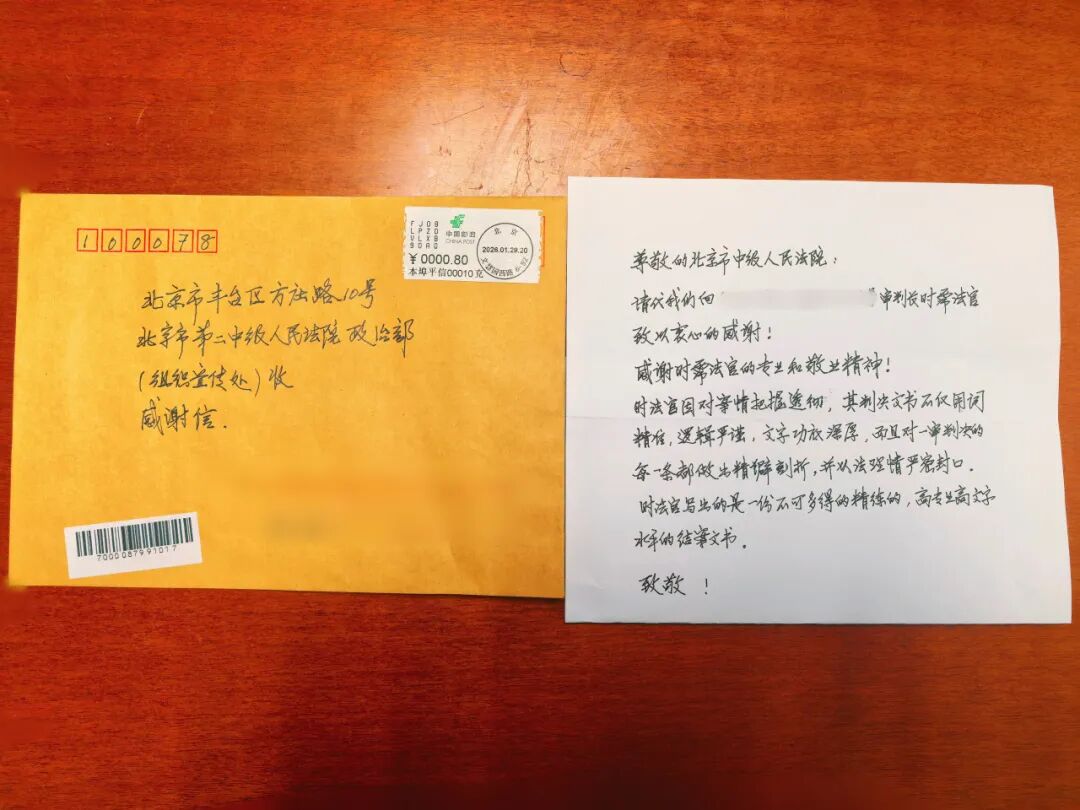 100078
FJ09
LPZ0
VLXB
9DAG
中国邮政
CHINA POST
¥0000.80
本埠平信00010克
北京
2026.01.29.20
北京市丰台区方庄路10号
北京市第二中级人民法院政治部
(组织宣传处)收
感谢信.
7000087991017
尊敬的北京市中级人民法院:
请代我们向 审判长时霈法官
致以衷心的感谢!
感谢时霈法官的专业和敬业精神!
时法官因对案情把握透彻,其判决文书不仅用词
精准,逻辑严谨,文字功底深厚,而且对一审判决的
每一条都做出精辟剖析,并以法理情严密封口.
时法官写出的是一份不可多得的精练的,高专业高文字
水平的结案文书.
致敬!